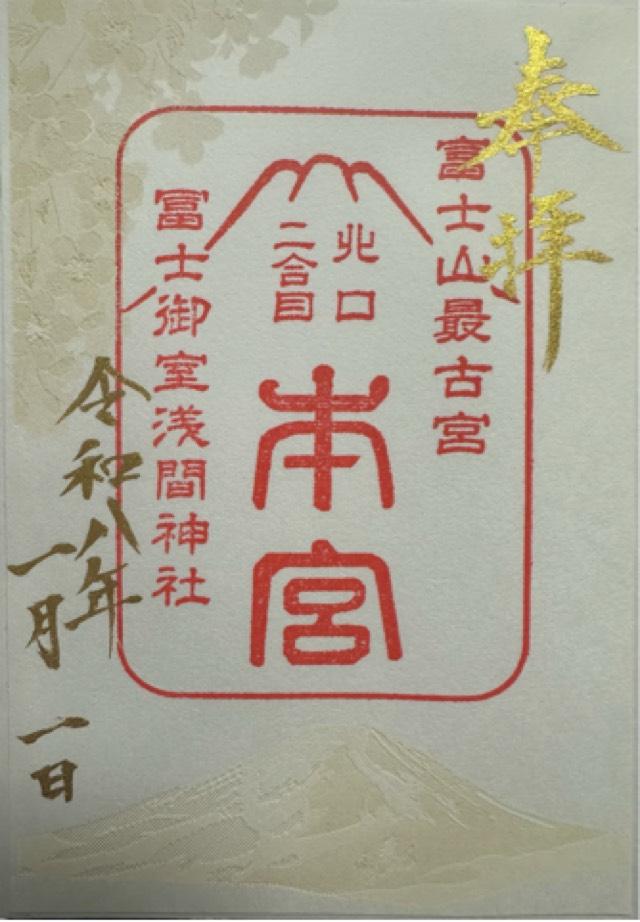 奉拝
冨士山最古宮
北口
二合目
本宮
冨士御室浅間神社
令和八年
一月一日